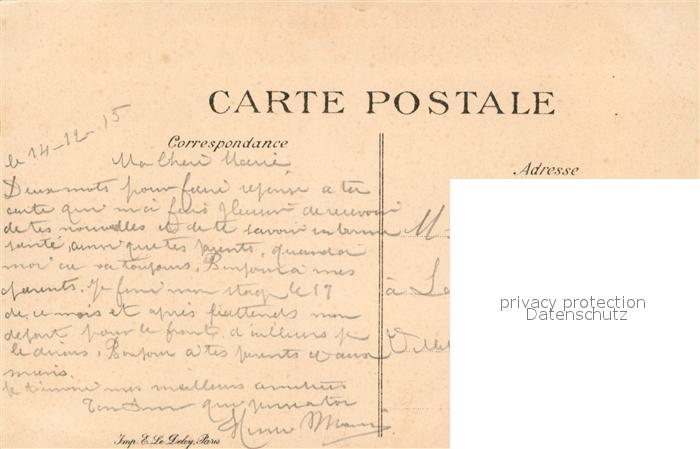 CARTE POSTALE
Correspondance
Adresse
le 14-12-15
Ma Cheri
Deux mots pour faire reponse a ta
carte qui m'a fais plaisir de recevoir
de tes nouvelles et de te savoir en bonne
santé, ainsi que tes parents, quand a
moi ca va toujours, Bonjour a mes
parents. Je fini mon stage le 17
de ce mois et après j'attends mon
depart pour le front, d'ailleurs je
le dirais, Bonjour a tes parents et aux
amis.
Je t'envoie mes meilleurs amitiés
Ton qui pense a toi
M
à Le
Vill
privacy protection
Datenschutz
Imp. E. Le Deley, Paris